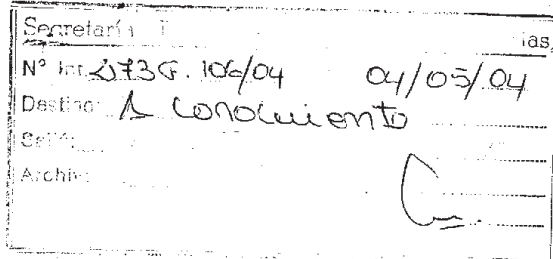 Secretaría T ias,
N° Int. 273G. 106/04 04/05/04
Destino: A conocimiento
Archivo: